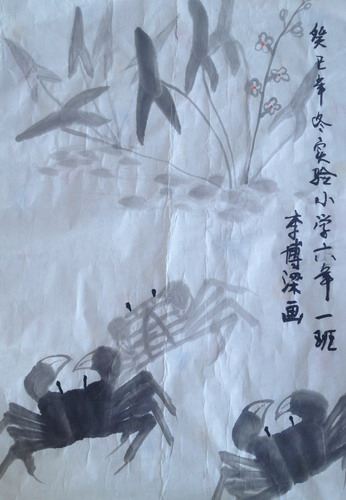 癸巳年冬实验小学六年一班
李博梁画